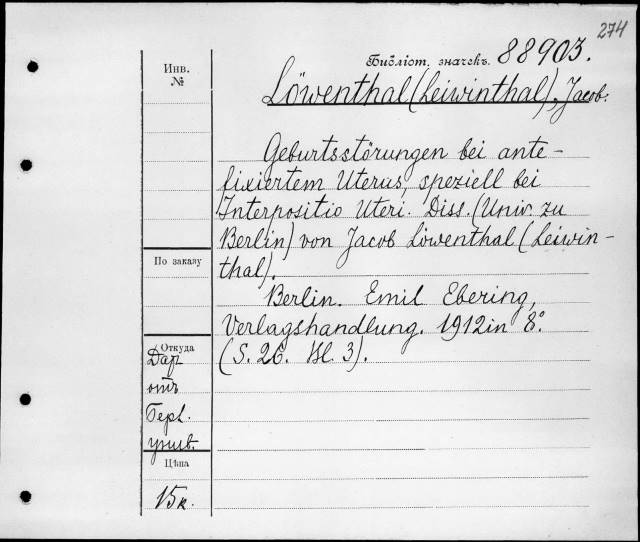 274
Библіот. значекъ. 88903.
Löwenthal (Leiwinthal), Jacob.
Инв.
№
Geburtsstörungen bei ante-
fixiertem Uterus, speziell bei
Interpositio Uteri. Diss. (Univ. zu
Berlin) von Jacob Löwenthal (Leiwin-
thal).
По заказу
Berlin. Emil Ebering,
Verlagshandlung. 1912 in 8°.
(S. 26. Bl. 3).
Откуда
Дар
отъ
Берл.
унив.
Цѣна
15к.